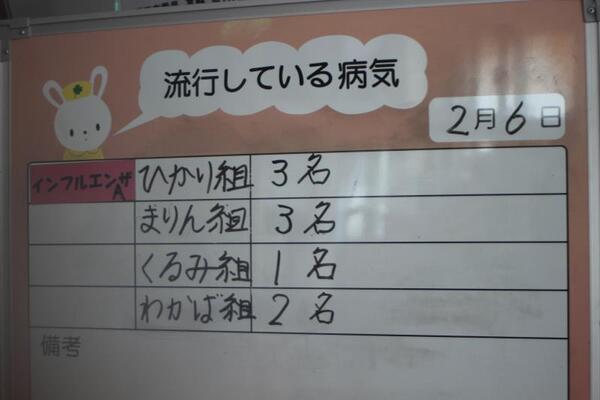 流行している病気
2月6日
インフルエンザA ひかり組 3名
まりん組 3名
くるみ組 1名
わかば組 2名
備考